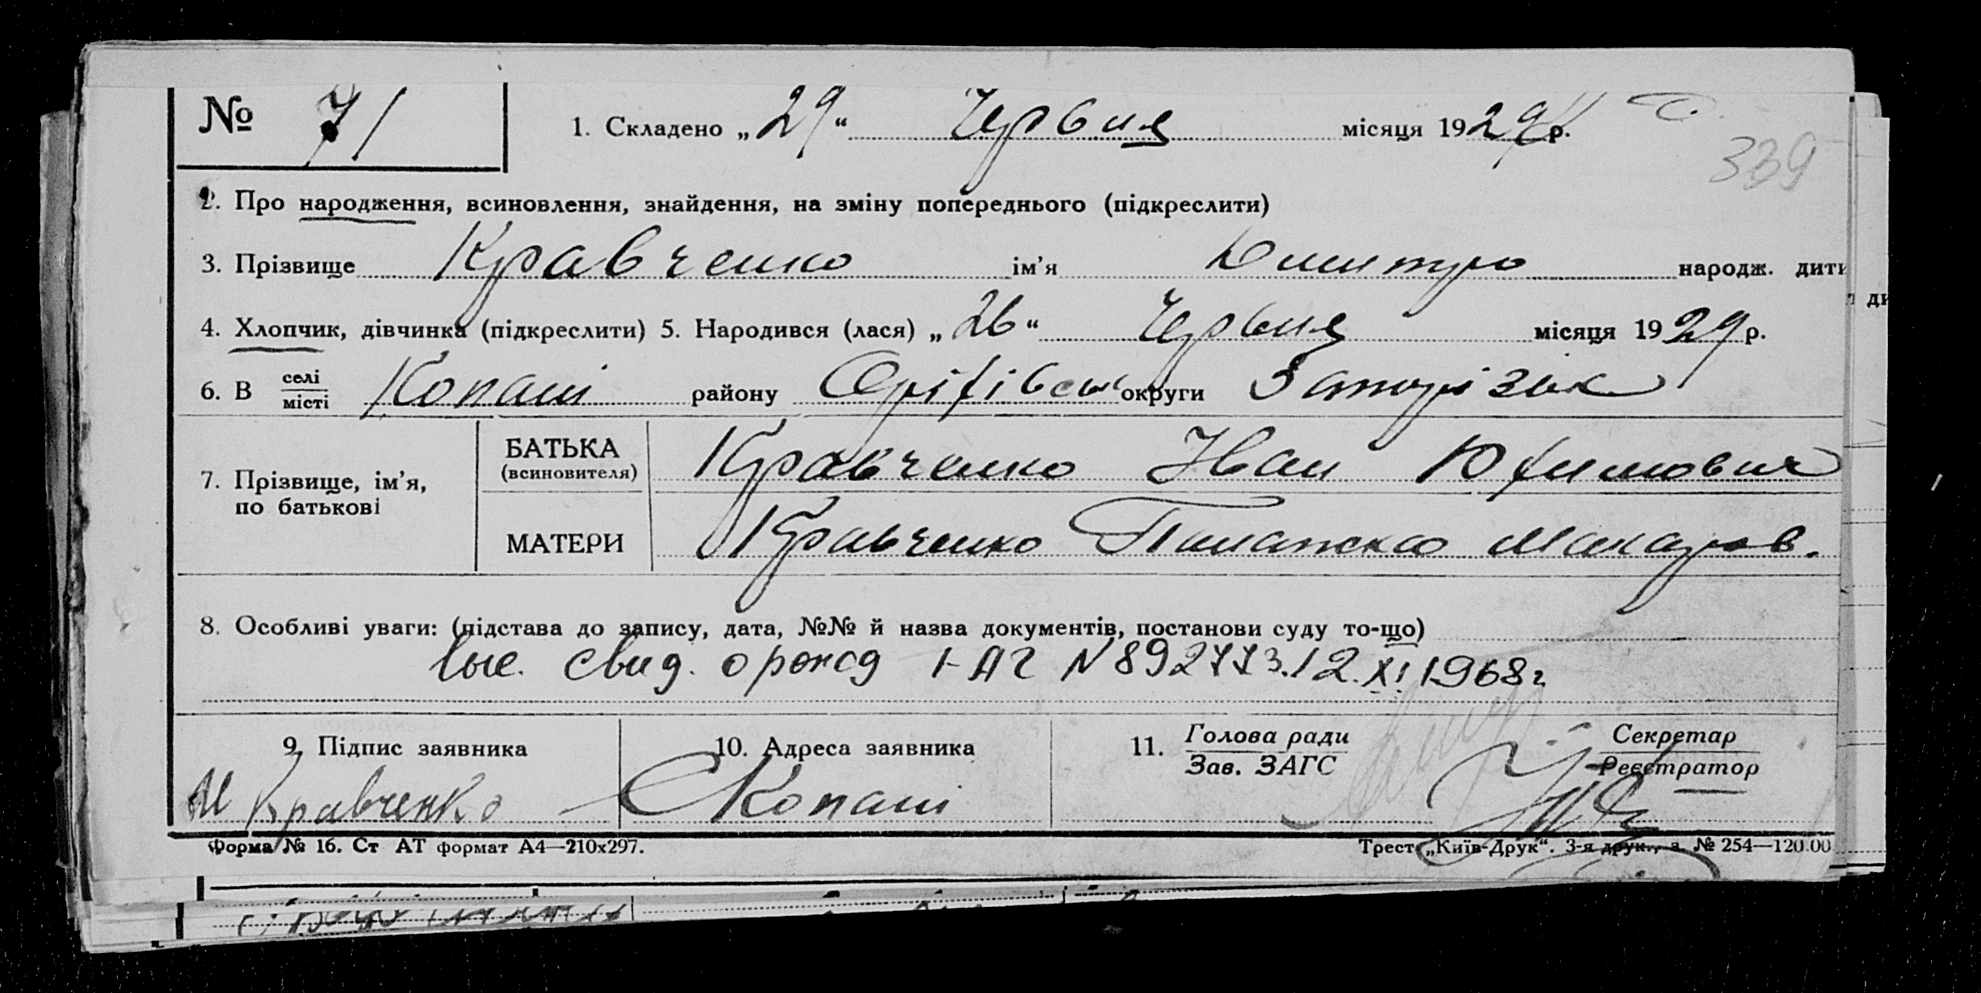 № 71
1. Складено „29“ Червня місяця 1929 р.
339
2. Про народження, всиновлення, знайдення, на зміну попереднього (підкреслити)
3. Прізвище Кравченко ім’я Дмитро народж. дити
4. Хлопчик, дівчинка (підкреслити) 5. Народився (лася) „26“ Червня місяця 1929 р.
6. В селі місті Копані району Оріхівськ округи Запорізьк
7. Прізвище, ім’я, по батькові
БАТЬКА (всиновителя) Кравченко Иван Юхимович
МАТЕРИ Кравченко Палажка Макаров.
8. Особливі уваги: (підстава до запису, дата, №№ й назва документів, постанови суду то-що)
выс. свид. о рожд I-АГ N 892773. 12.XI 1968г
9. Підпис заявника 10. Адреса заявника 11. Голова ради Секретар
Зав. ЗАГС Реєстратор
И Кравченко Копані
Форма № 16. Ст АТ формат А4—210х297. Трест „Київ-Друк“. 3-я друк., з. № 254—120.00